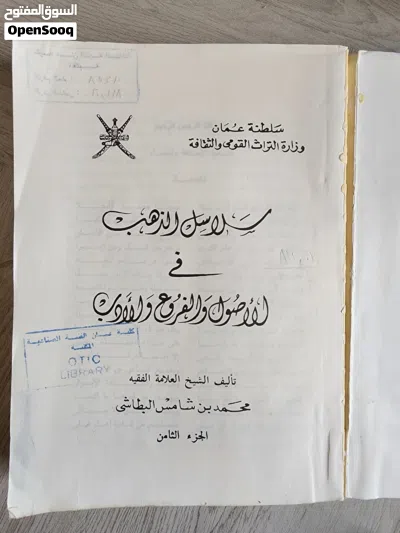 السوق المفتوح
OpenSooq
سلطنة عمان
وزارة التراث القومي والثقافة
سلاسل الذهب
في
الأصول والفروع والأدب
المكتبة
OTIC
LIBRARY
تأليف الشيخ العلامة الفقيه
محمد بن شامس البطاشي
الجزء الثامن